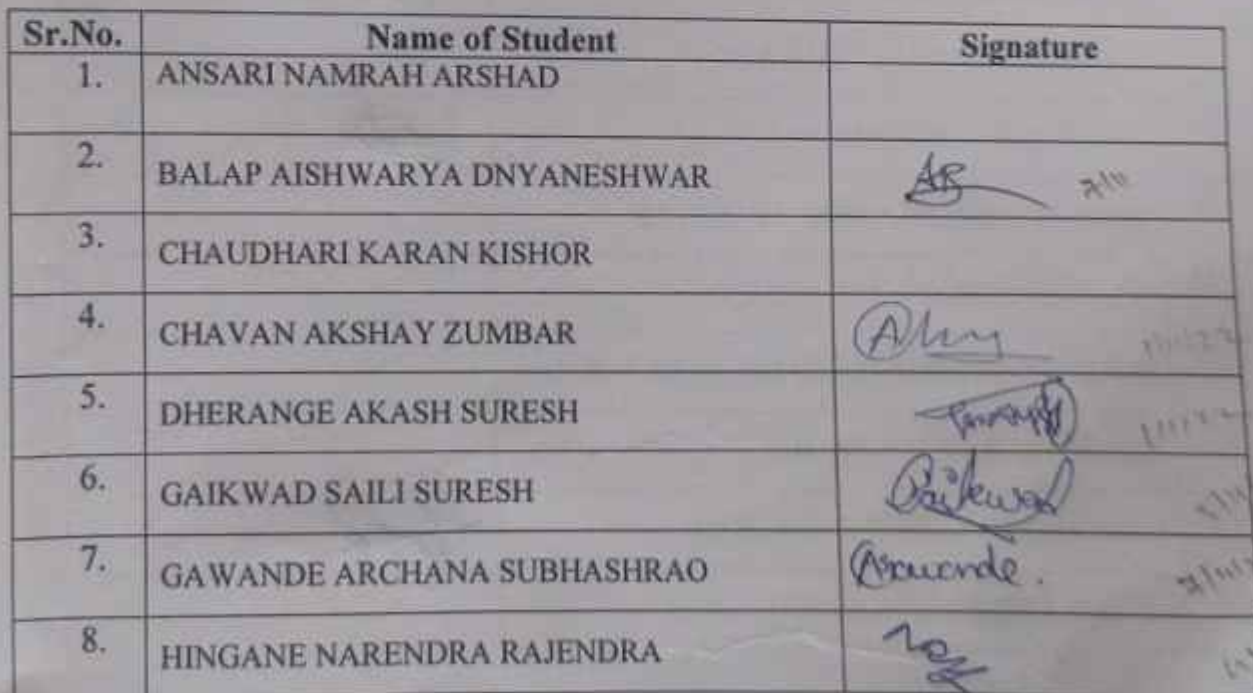 Sr.No. Name of Student Signature
1. ANSARI NAMRAH ARSHAD
2. BALAP AISHWARYA DNYANESHWAR AB 7/11
3. CHAUDHARI KARAN KISHOR
4. CHAVAN AKSHAY ZUMBAR
5. DHERANGE AKASH SURESH
6. GAIKWAD SAILI SURESH Gaikwad
7. GAWANDE ARCHANA SUBHASHRAO Gawande.
8. HINGANE NARENDRA RAJENDRA